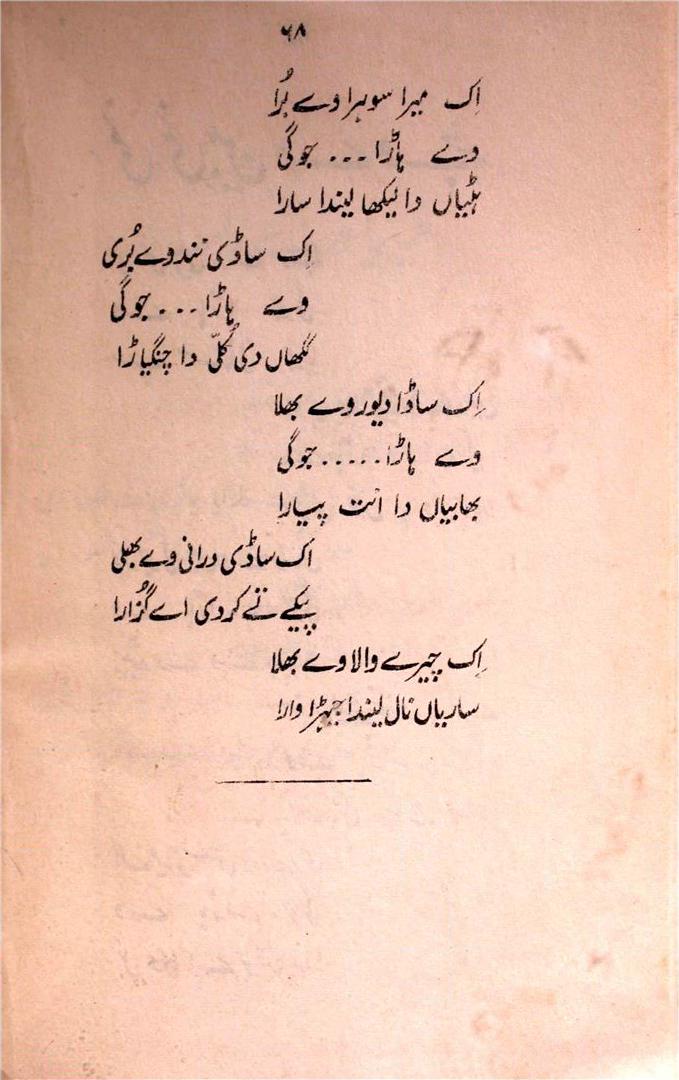 ۶۸
اِک میرا سوہرا وے بُرا
وے ہاڑا ... جوگی
ہٹیاں دا لیکھا لیندا سارا
اِک ساڈی نند وے بُری
وے ہاڑا ... جوگی
گھاں دی کُلّی دا چنگیاڑا
اِک ساڈا دیور وے بھلا
وے ہاڑا ..... جوگی
بھابیاں دا انت پیارا
اک ساڈی درانی وے بھلی
پیکے تے کردی اے گُزارا
اِک چیرے والا وے بھلا
ساریاں نال لیندا جیہڑا وارا